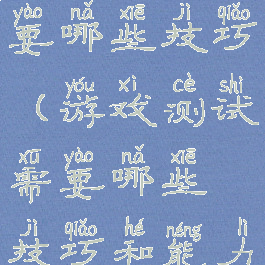 yào nǎ xiē jì qiǎo
要哪些技巧
yóu xì cè shì
(游戏测)试
xū yào nǎ xiē
需要哪些
jì qiǎo hé néng lì
技巧和能力